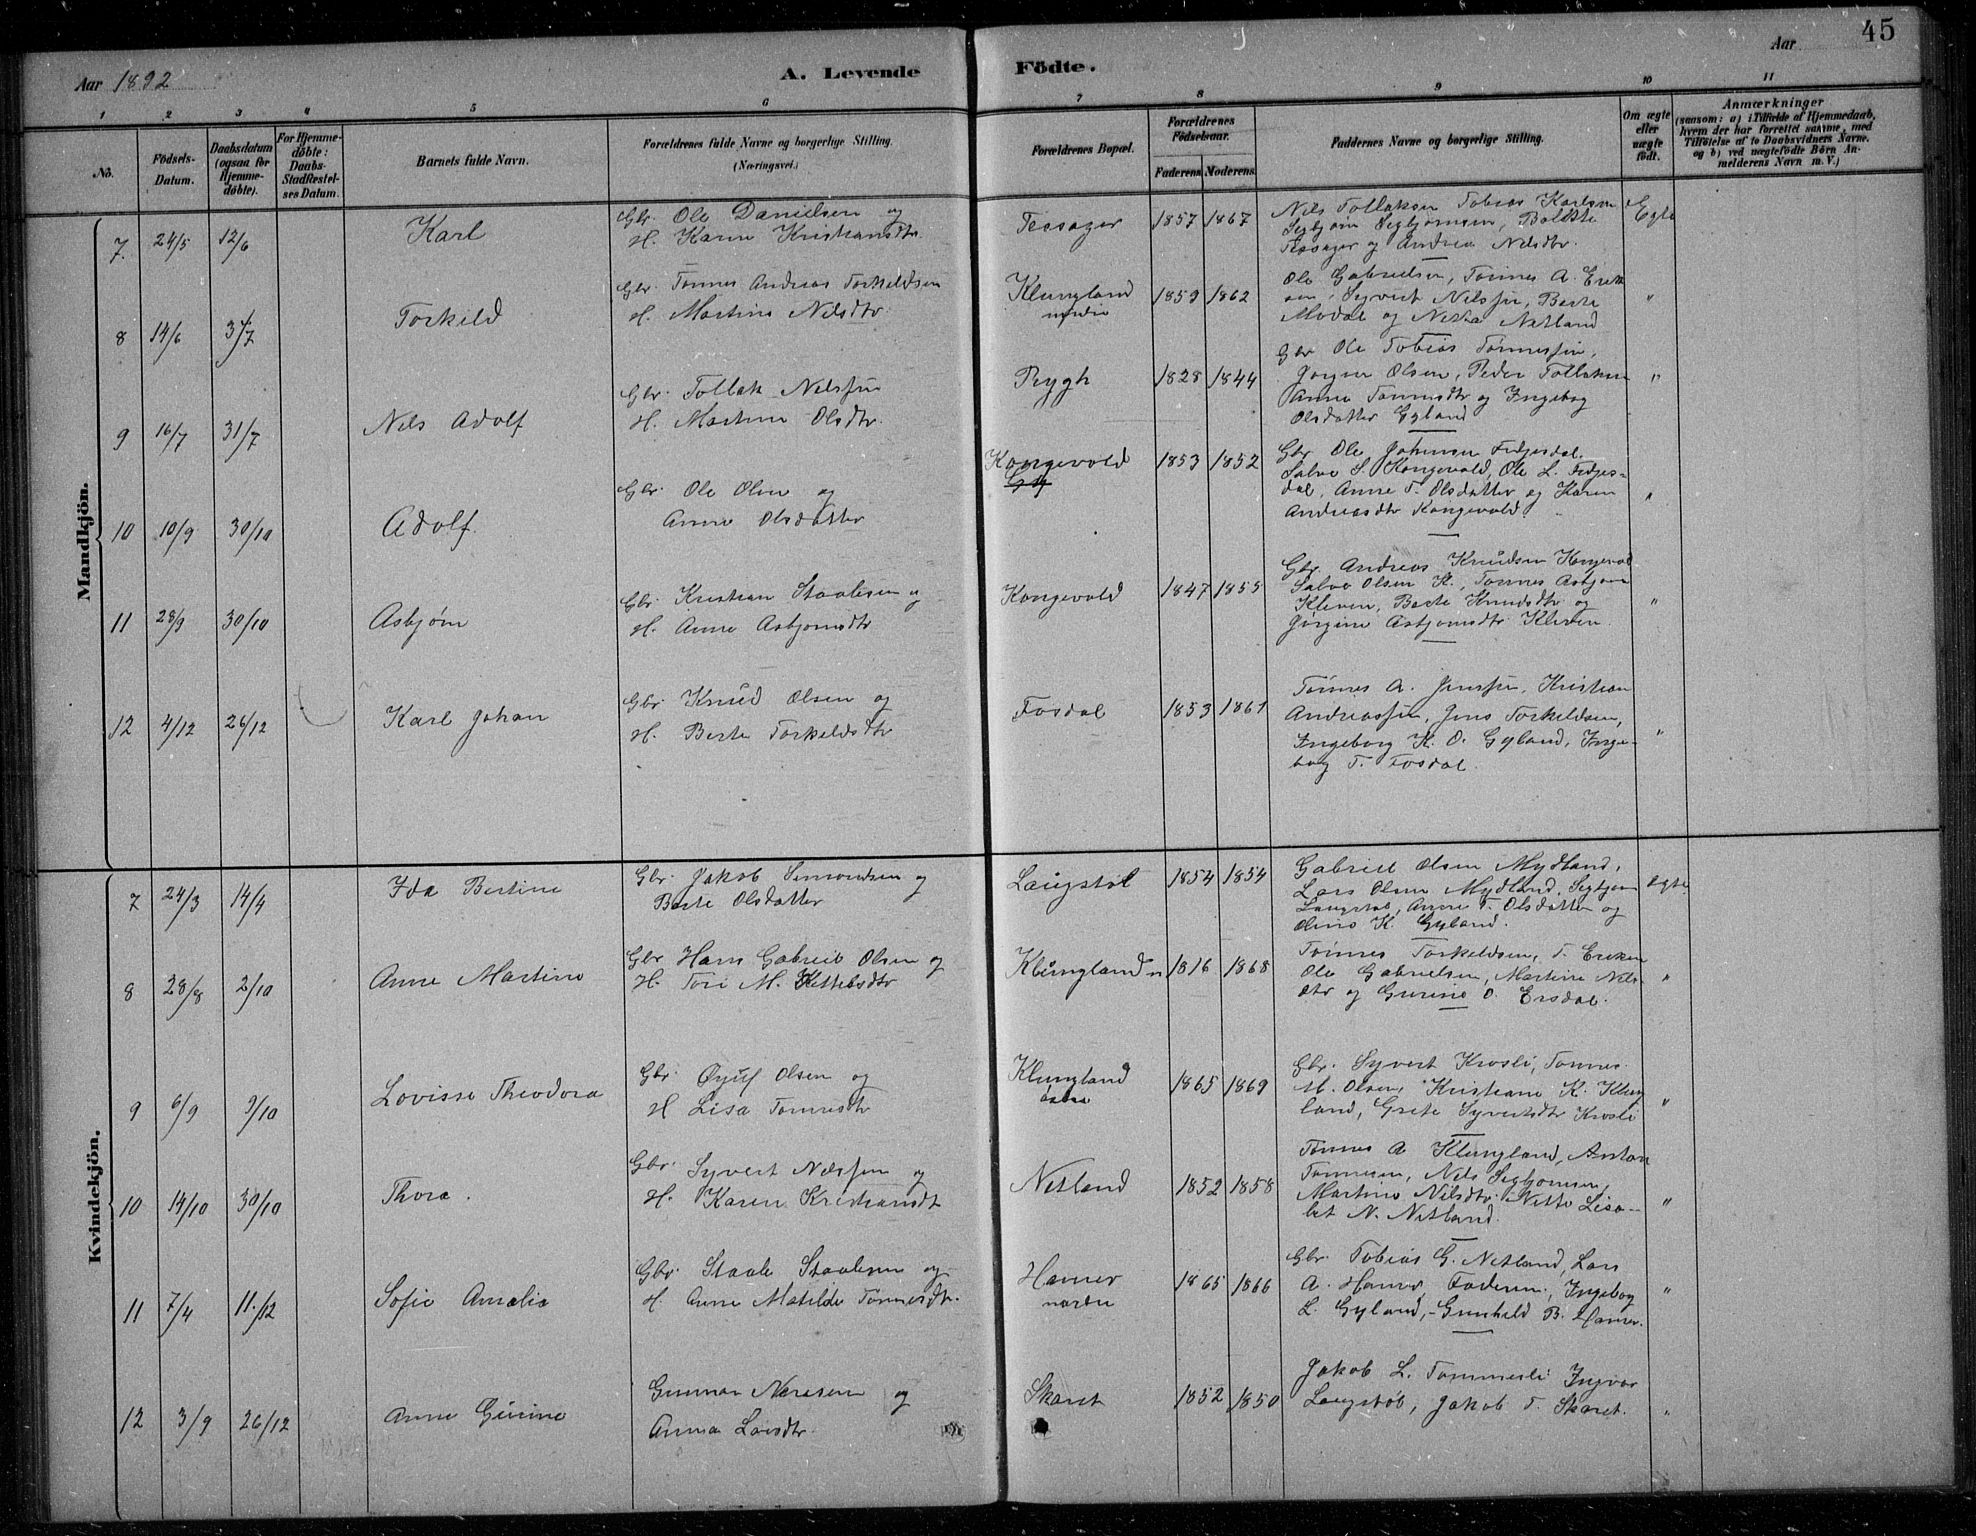 45
Aar 1892
A. Levende
Födte.
Aar
1 2 3 4 5 6 7 8 9 10 11
No.
Födsels-Datum.
Daabsdatum (ogsaa for Hjemmedöbte).
For Hjemmedöbte: Daabs-Stadfæstelses Datum.
Barnets fulde Navn.
Forældrenes fulde Navne og borgerlige Stilling. (Næringsvei.)
Forældrenes Bopæl.
Forældrenes Födselsaar.
Faderens. Moderens.
Faddernes Navne og borgerlige Stilling.
Om ægte eller uægte födt.
Anmærkninger
(saasom: a) i Tilfælde af Hjemmedaab, hvem der har forrettet samme, med Tilföielse af to Daabsvidners Navne, og b) ved uægtefödte Börn Anmelderens Navn m. V.)
Mandkjön.
7. 24/5 12/6 Karl
Gbr. Ole Danielsen og
H. Karen Kristiansdtr.
Tessager 1857 1867
Nils Tollaksen Tobias Karlsen
Segbjørn Segbjørnsen, Bolette
Tessager og Andrea Nilsdtr.
Egte
8 14/6 3/7 Torkild
Gbr. Tønnes Andreas Torkeldsen
H. Martine Nilsdtr.
Klungland
nordre
1859 1862
Ole Gabrielsen, Tønnes A. Erik
sen, Syvert Nilssen, Berte
Modal og Netta Netland
"
9 16/7 31/7 Nils Adolf
Gbr. Tollak Nilssen
H. Martine Olsdtr.
Rygh 1828 1844
Gbr Ole Tobias Tønnessen,
Jørgen Olsen, Peder Tollaksen
Anna Tønnesdtr og Ingebog
Olsdatter Gyland
"
10 10/9 30/10 Adolf.
Gbr. Ole Olsen og
Anne Olsdatter
Kongevold 1853 1852
Gbr Ole Johnsen Fidjesdal.
Salve S. Kongevold, Ole L. Fidjes-
dal, Anne T. Olsdatter og Karen
Andreasdtr Kongevold.
"
11 28/9 30/10 Asbjørn
Gbr. Kristian Staalesen og
H. Anne Asbjørnsdtr
Kongevold 1847 1855
Gbr. Andreas Knudsen Kongevold
Salve Olsen K., Tønnes Asbjørn
Kleven, Berte Knudsdtr og
Jørgine Asbjørnsdtr Kleven.
"
12 4/12 26/12 Karl Johan
Gbr Knud Olsen og
H. Berte Torkeldsdtr
Fosdal 1853 1861
Tønnes A. Jenssen, Kristian
Andreassen, Jens Torkeldsen,
Ingeborg K. O. Gyland, Inge-
borg T. Fosdal.
"
Kvindekjön.
7 24/3 14/4 Ida Bertine
Gbr. Jakob Simondsen og
Berte Olsdatter
Laugstøl 1854 1854
Gabriel Olsen Mydland,
Lars Olsen Mydland, Segbjørn
Laugstøl, Anne T. Olsdatter og
Oline K. Gyland.
Egte
8 28/8 2/10 Anne Martine
Gbr Hans Gabriel Olsen og
H. Tori M. Kittelsdtr
Klungland n 1816 1868
Tønnes Torkeldsen, T. Eriksen
Ole Gabrielsen, Martine Nils-
dtr og Gurine O. Ersdal.
"
9 6/9 9/10 Lovisse Theodora
Gbr. Øyuf Olsen og
H Lisa Tønnesdtr
Klungland
østre
1865 1869
Gbr. Syvert Krosli, Tønnes
M. Olsen, Kristiane K. Klung
land, Grete Syvertsdtr Krosli
"
10 14/10 30/10 Thora.
Gbr. Syvert Nilssen og
H. Karen Kristiansdt
Netland 1852 1858
Tønnes A Klungland, Anton
Tønnesen, Nils Segbjørnsen,
Martine Nilsdtr. Netto Lisa-
bet N. Netland.
"
11 7/4 11./12 Sofie Amalia
Gbr. Staale Staalesen og
H. Anne Matilde Tønnesdtr.
Hamer
nordre
1865 1866
Gbr. Tobias G. Netland, Lars
A. Hamer, Faderen, Ingebog
L. Gyland, Gunhild B. Hamer.
"
12 3/9 26/12 Anne Gurine
Gunnar Naresen og
Anna Larsdtr.
Skaret 1852 1850
Jakob L. Tommerli Ingvar
Laugstøl, Jakob T. Skaret.
"